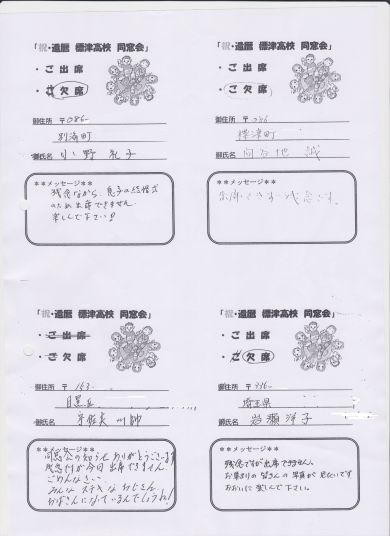 「祝・還暦 標津高校 同窓会」
・ ご 出 席
・ ご 欠 席
御住所 〒086-
別海町
御氏名 小野 礼子
**メッセージ**
残念ながら、息子の結婚式
のため出席できません。
楽しんで下さい!
「祝・還暦 標津高校 同窓会」
・ ご 出 席
・ ご 欠 席
御住所 〒086
標津町
御氏名 誠
**メッセージ**
出席できず残念です。
「祝・還暦 標津高校 同窓会」
・ ご 出 席
・ ご 欠 席
御住所 〒 153-
目黒区
御氏名
**メッセージ**
同窓会の知らせ ありがとうございます
残念だが今回 出席できません。
ごめんなさい…
みんな ステキな おじさん
おばさんになっているんでしょうね!
「祝・還暦 標津高校 同窓会」
・ ご 出 席
・ ご 欠 席
御住所 〒
埼玉県
御氏名 岩瀬 洋子
**メッセージ**
残念ですが出席できません。
お集まりの皆さんの 写真が 見たいです
おおいに 楽しんで 下さい。